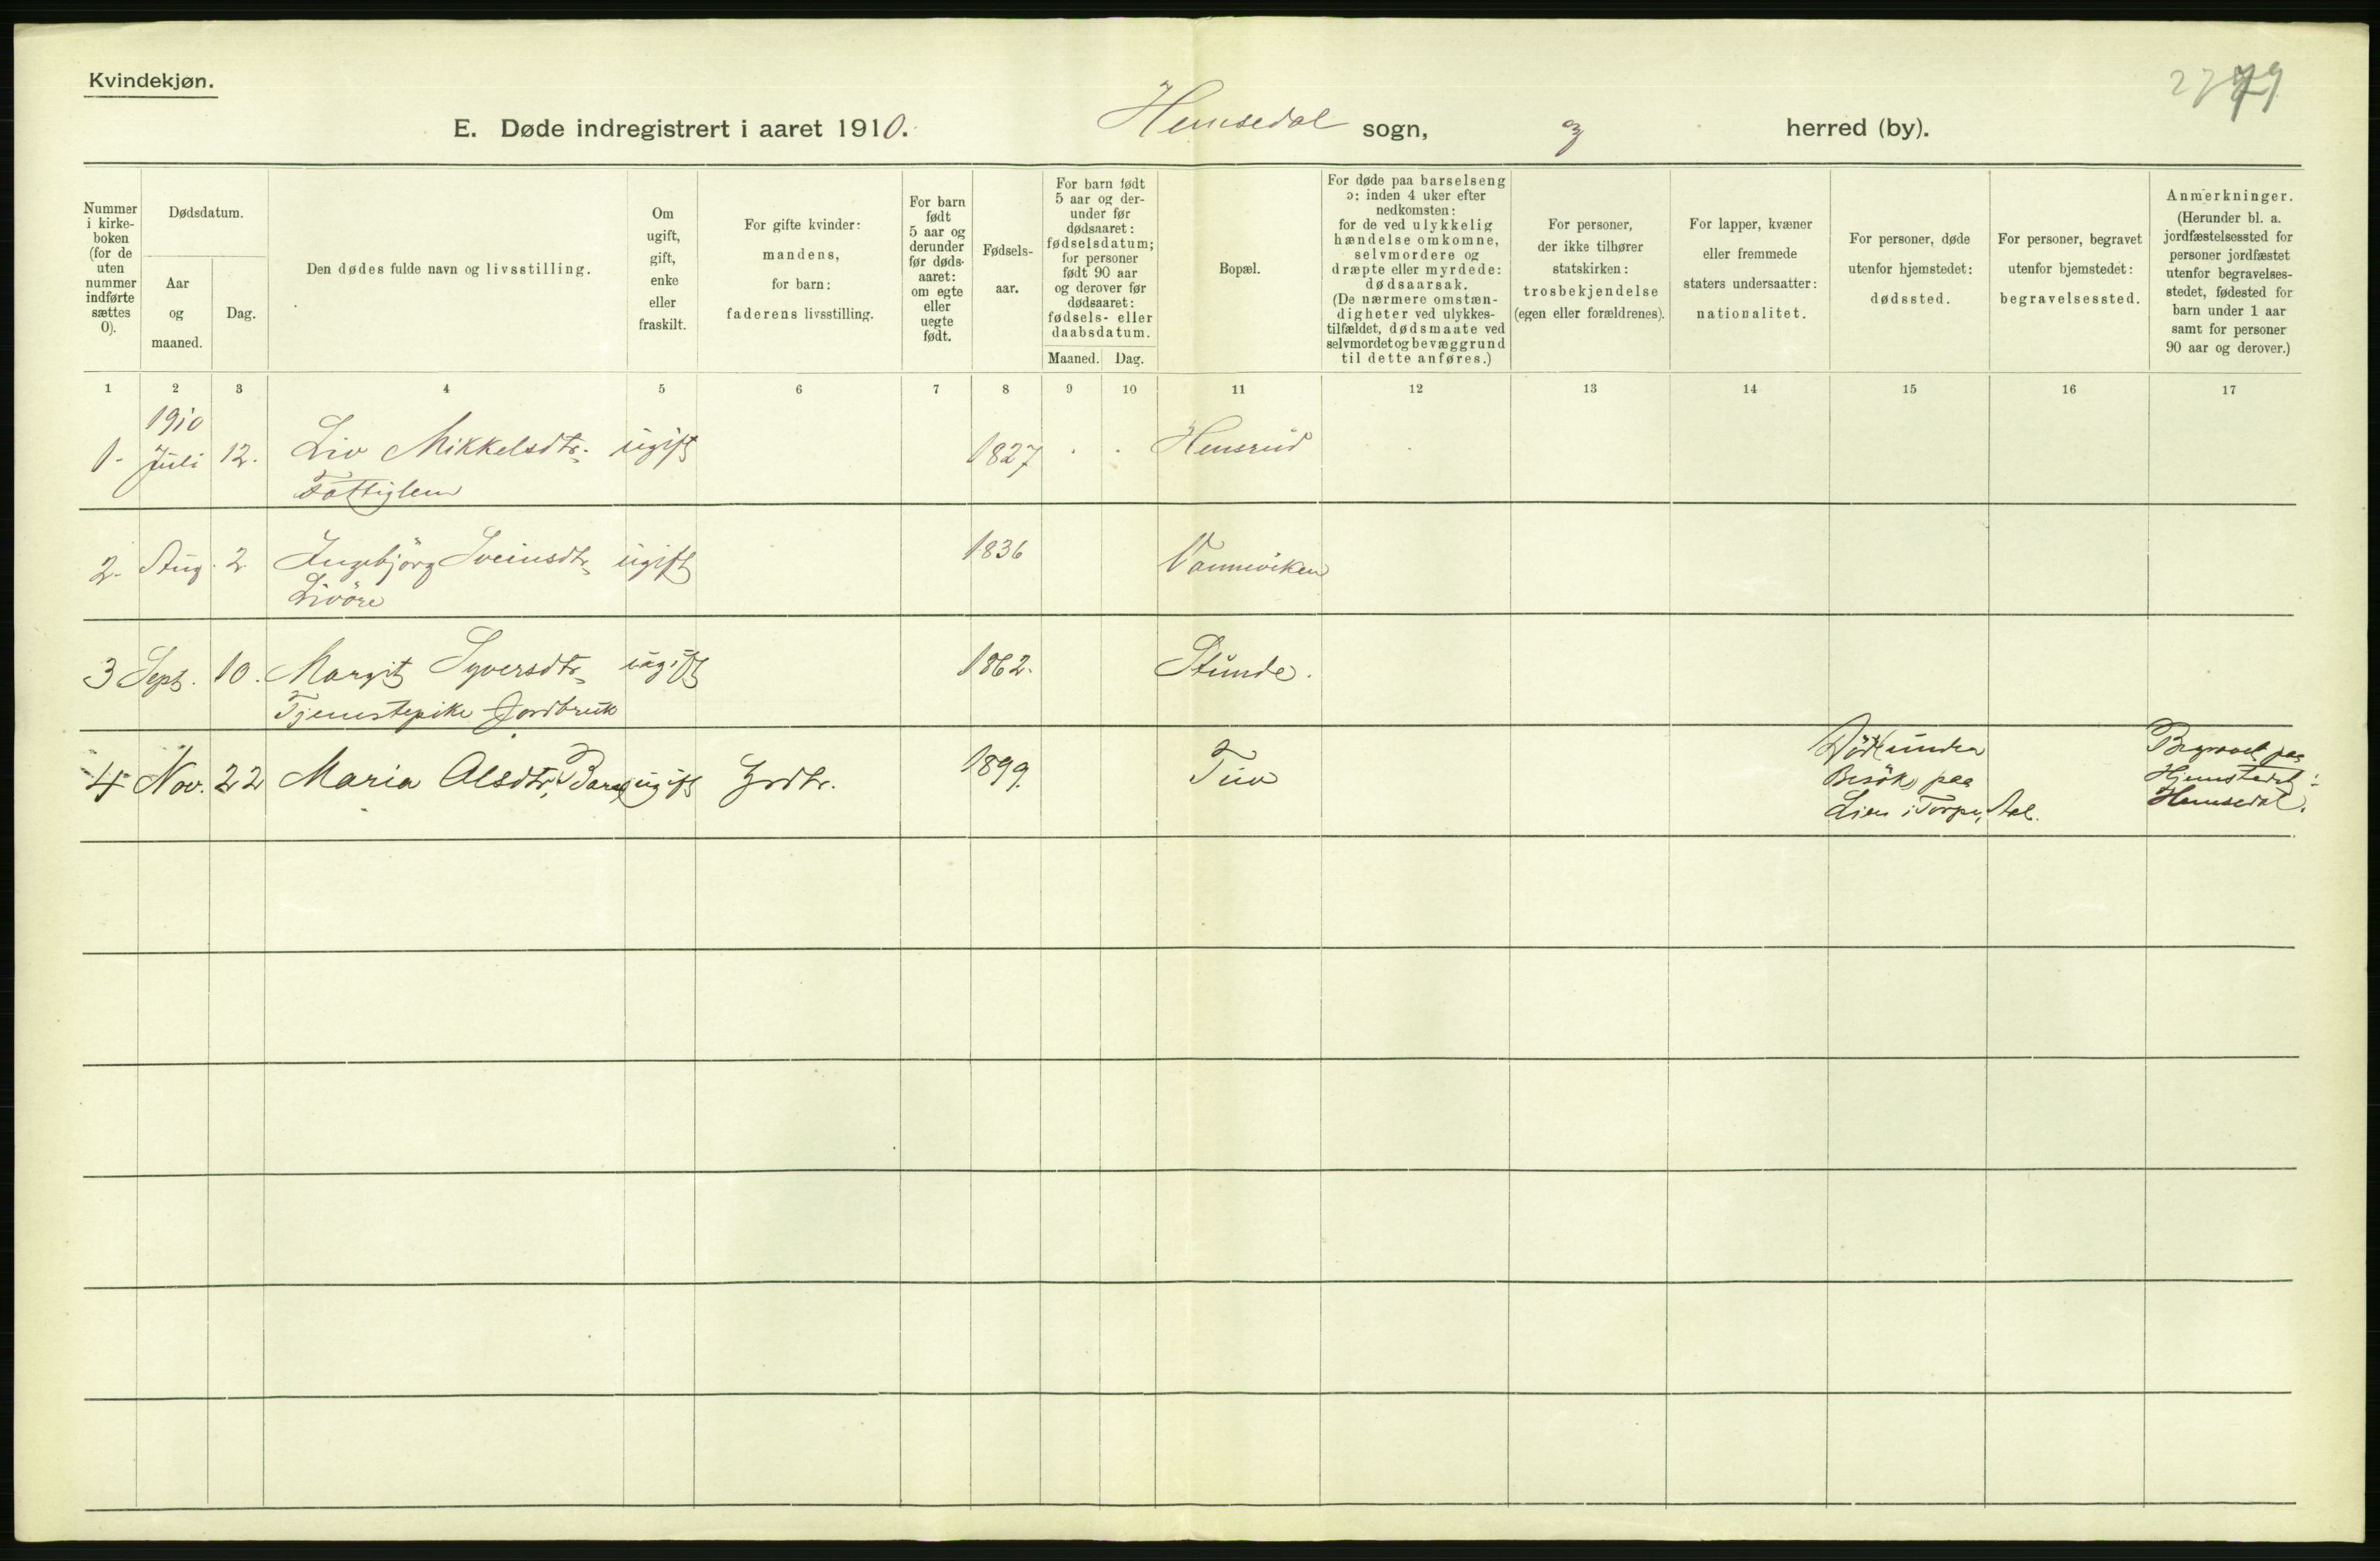 Kvindekjøn.
E. Døde indregistrert i aaret 1910. Hemsedal sogn, herred (by).
Nummer i kirke-boken (for de uten nummer indførte sættes 0).
Dødsdatum.
Aar og maaned.
Dag.
Den dødes fulde navn og livsstilling.
Om ugift, gift, enke eller fraskilt.
For gifte kvinder: mandens, for barn: faderens livsstilling.
For barn født 5 aar og derunder før døds-aaret: om egte eller uegte født.
Fødsels-aar.
For barn født 5 aar og der-under før dødsaaret: fødselsdatum; for personer født 90 aar og derover før dødsaaret: fødsels- eller daabsdatum.
Maaned. Dag.
Bopæl.
For døde paa barselseng ɔ: inden 4 uker efter nedkomsten: for de ved ulykkelig hændelse omkomne, selvmordere og dræpte eller myrdede: dødsaarsak. (De nærmere omstæn-digheter ved ulykkes-tilfældet, dødsmaate ved selvmordet og bevæggrund til dette anføres.)
For personer, der ikke tilhører statskirken: trosbekjendelse (egen eller forældrenes).
For lapper, kvæner eller fremmede staters undersaatter: nationalitet.
For personer, døde utenfor hjemstedet: dødssted.
For personer, begravet utenfor hjemstedet: begravelsessted.
Anmerkninger. (Herunder bl. a. jordfæstelsessted for personer jordfæstet utenfor begravelses-stedet, fødested for barn under 1 aar samt for personer 90 aar og derover.)
1 2 3 4 5 6 7 8 9 10 11 12 13 14 15 16 17
1910
1. Juli 12. Liv Mikkelsdtr. ugift 1827 Hensrud
Fattiglem
2. Aug. 2 Ingebjörg Sveinsdtr. ugift 1836
Livöre
3 Sept. 10. Margit Syversdtr. ugift 1862. Stunde.
Tjenestepike Jordbruk
4 Nov. 22 Maria Olsdtr, Barn ugift Grdbr. 1899. Tuv
Död under
Besök paa
Lien i Torpe, Aal.
Begravet paa
Hjemstedet:
Hemsedal.